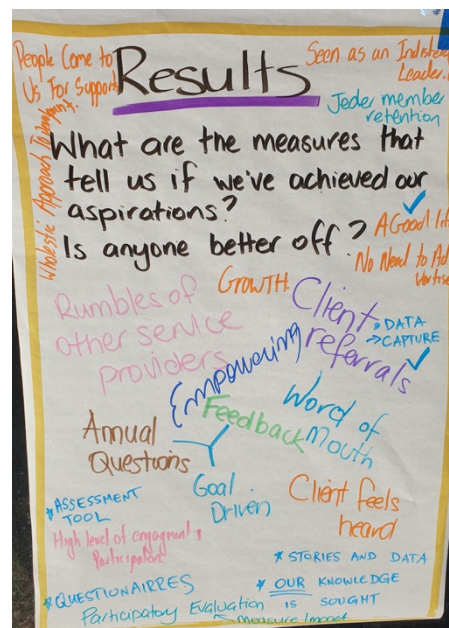 People Come to
Us For Support
Results
Seen as an
Leader.
Jeder member
retention
Wholestic Approach
What are the measures that
tell us if we've achieved our
aspirations?
Is anyone better off?
A Good
No Need to Ad
vertise
GROWTH
Rumbles of
other service
providers
Client
referrals
* DATA
→ CAPTURE
Empowering
Feedback
Word of
Mouth
Annual
Questions
Goal
Driven
Client feels
heard
* ASSESSMENT
TOOL
High level of engagment &
Participation
* STORIES AND DATA
* QUESTIONAIRRES
* OUR KNOWLEDGE
IS SOUGHT
Participatory Evaluation
Measure Impact